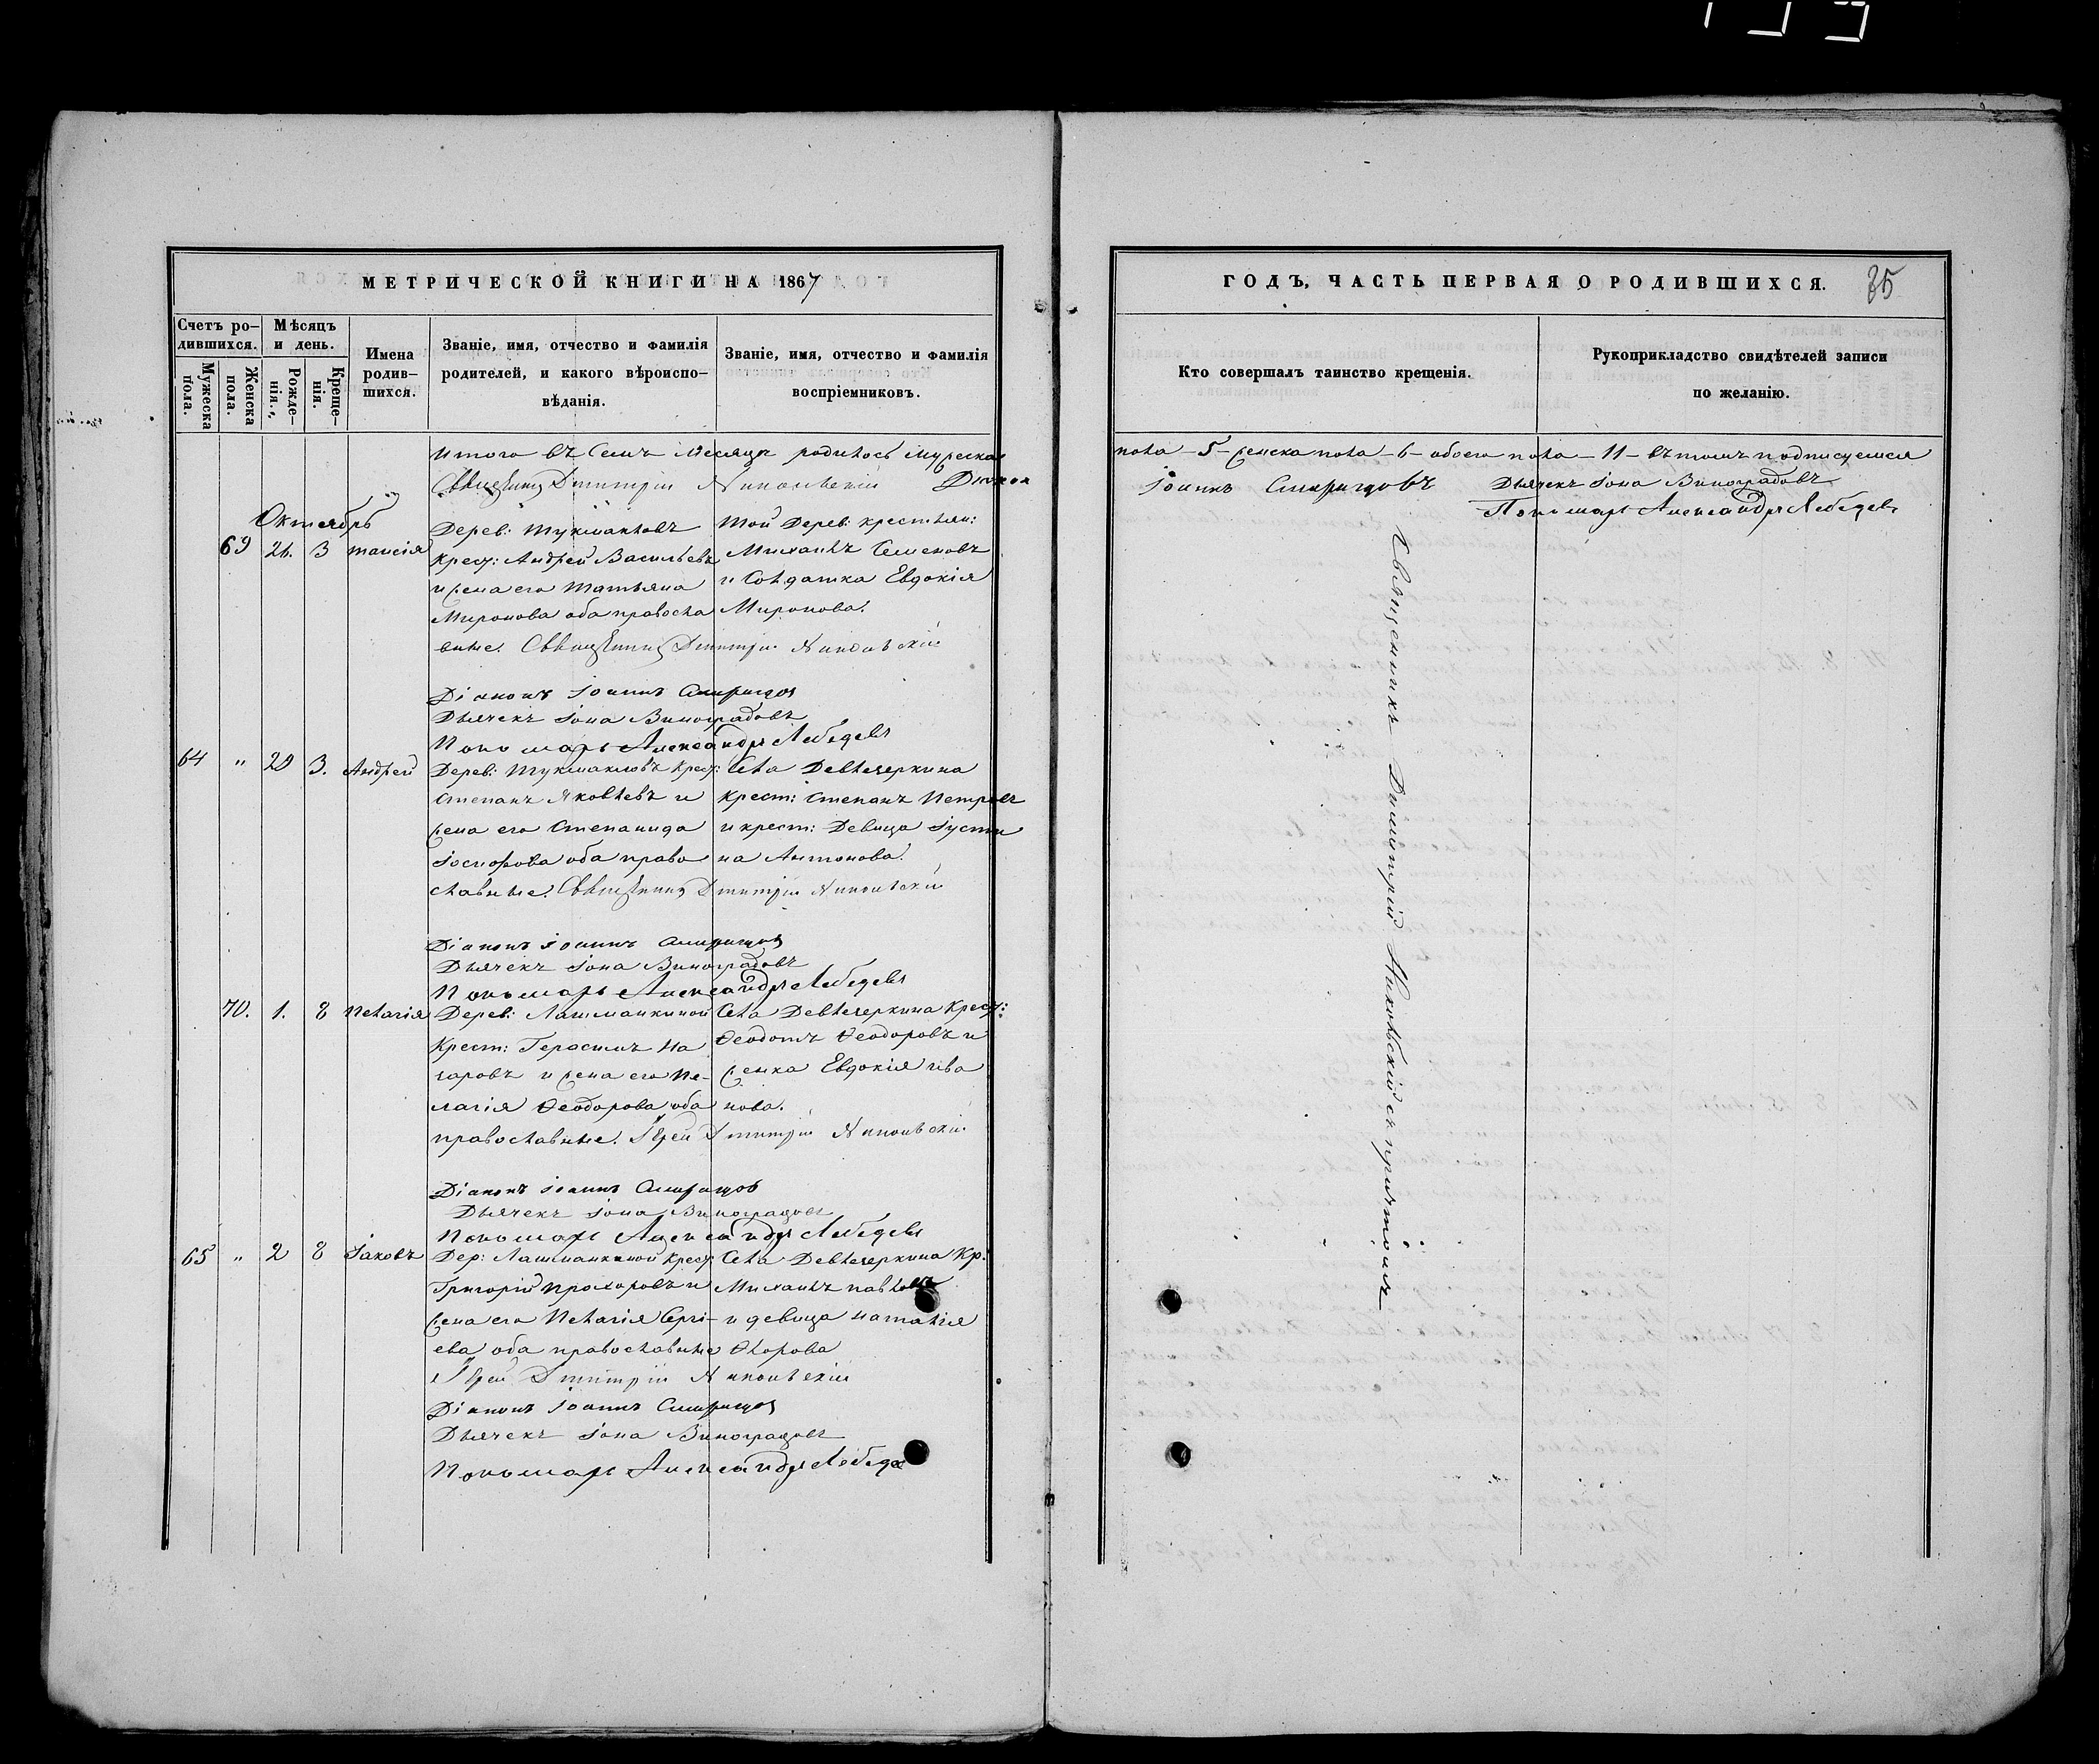 МЕТРИЧЕСКОЙ КНИГИ НА 1867
Счетъ ро-
дившихся.
Мѣсяцъ
и день.
Мужеска
пола.
Женска
пола.
Рожде-
нія.
Креще-
нія.
Имена
родив-
шихся.
Званіе, имя, отчество и фамилія
родителей, и какого вѣроиспо-
вѣданія.
Званіе, имя, отчество и фамилія
воспріемниковъ.
Итого въ семъ месяце родилось мужеска
Священникъ Димитрій Никольскій Діаконъ
Октябрь
69 26. 3 таисія
Дерев: Тукмаковъ
Крест: Андрей Васильевъ
и жена его Татьяна
Миронова оба правосла
вные. Священникъ Димитрій Никольскій
той Дерев: крестьян:
Михаилъ Семеновъ
и Солдатка Евдокія
Миронова.
Діаконъ Іоаннъ
Дьячекъ Іона Виноградовъ
Пономарь Александръ Лебедевъ
64 " 29 3. Андрей
Дерев: Тукмаковъ Крест:
Степанъ Яковлевъ и
жена его Степанида
Іосифова оба право
славные. Священникъ Димитрій Никольскій
Села Девлезеркина
Крест: Степанъ Петровъ
и крест: Девица Іусти
на Антонова.
Діаконъ Іоаннъ
Дьячекъ Іона Виноградовъ
Пономарь Александръ Лебедевъ
70. 1. 8 Пелагія
Дерев: Лашманкиной
Крест: Герасимъ На
заровъ и жена его Пе-
лагія Ѳеодорова оба
православные. Іерей Димитрій Никольскій
Села Девлезеркина Крест:
Ѳеодотъ Ѳеодоровъ и
женка Евдокія ива
нова.
Діаконъ Іоаннъ
Дьячекъ Іона Виноградовъ
Пономарь Александръ Лебедевъ
65 " 2 8 Іаковъ
Дер: Лашманкиной Крест:
Григорій прохоровъ и
жена его Пелагія Сергі-
ева оба православные
Села Девлезеркина Кр:
Михаилъ павловъ
и девица наталія
Флорова
Іерей Димитрій Никольскій
Діаконъ Іоаннъ
Дьячекъ Іона Виноградовъ
Пономарь Александръ Лебедев
ГОДЪ, ЧАСТЬ ПЕРВАЯ О РОДИВШИХСЯ. 35
Кто совершалъ таинство крещенія.
Рукоприкладство свидѣтелей записи
по желанію.
пола - 5 - женска пола - 6 - обоего пола - 11 - въ томъ подписуемся
Іоаннъ Дьячекъ Іона Виноградовъ
Пономарь Александръ Лебедевъ
Священникъ Димитрій Никольскій съ причтомъ